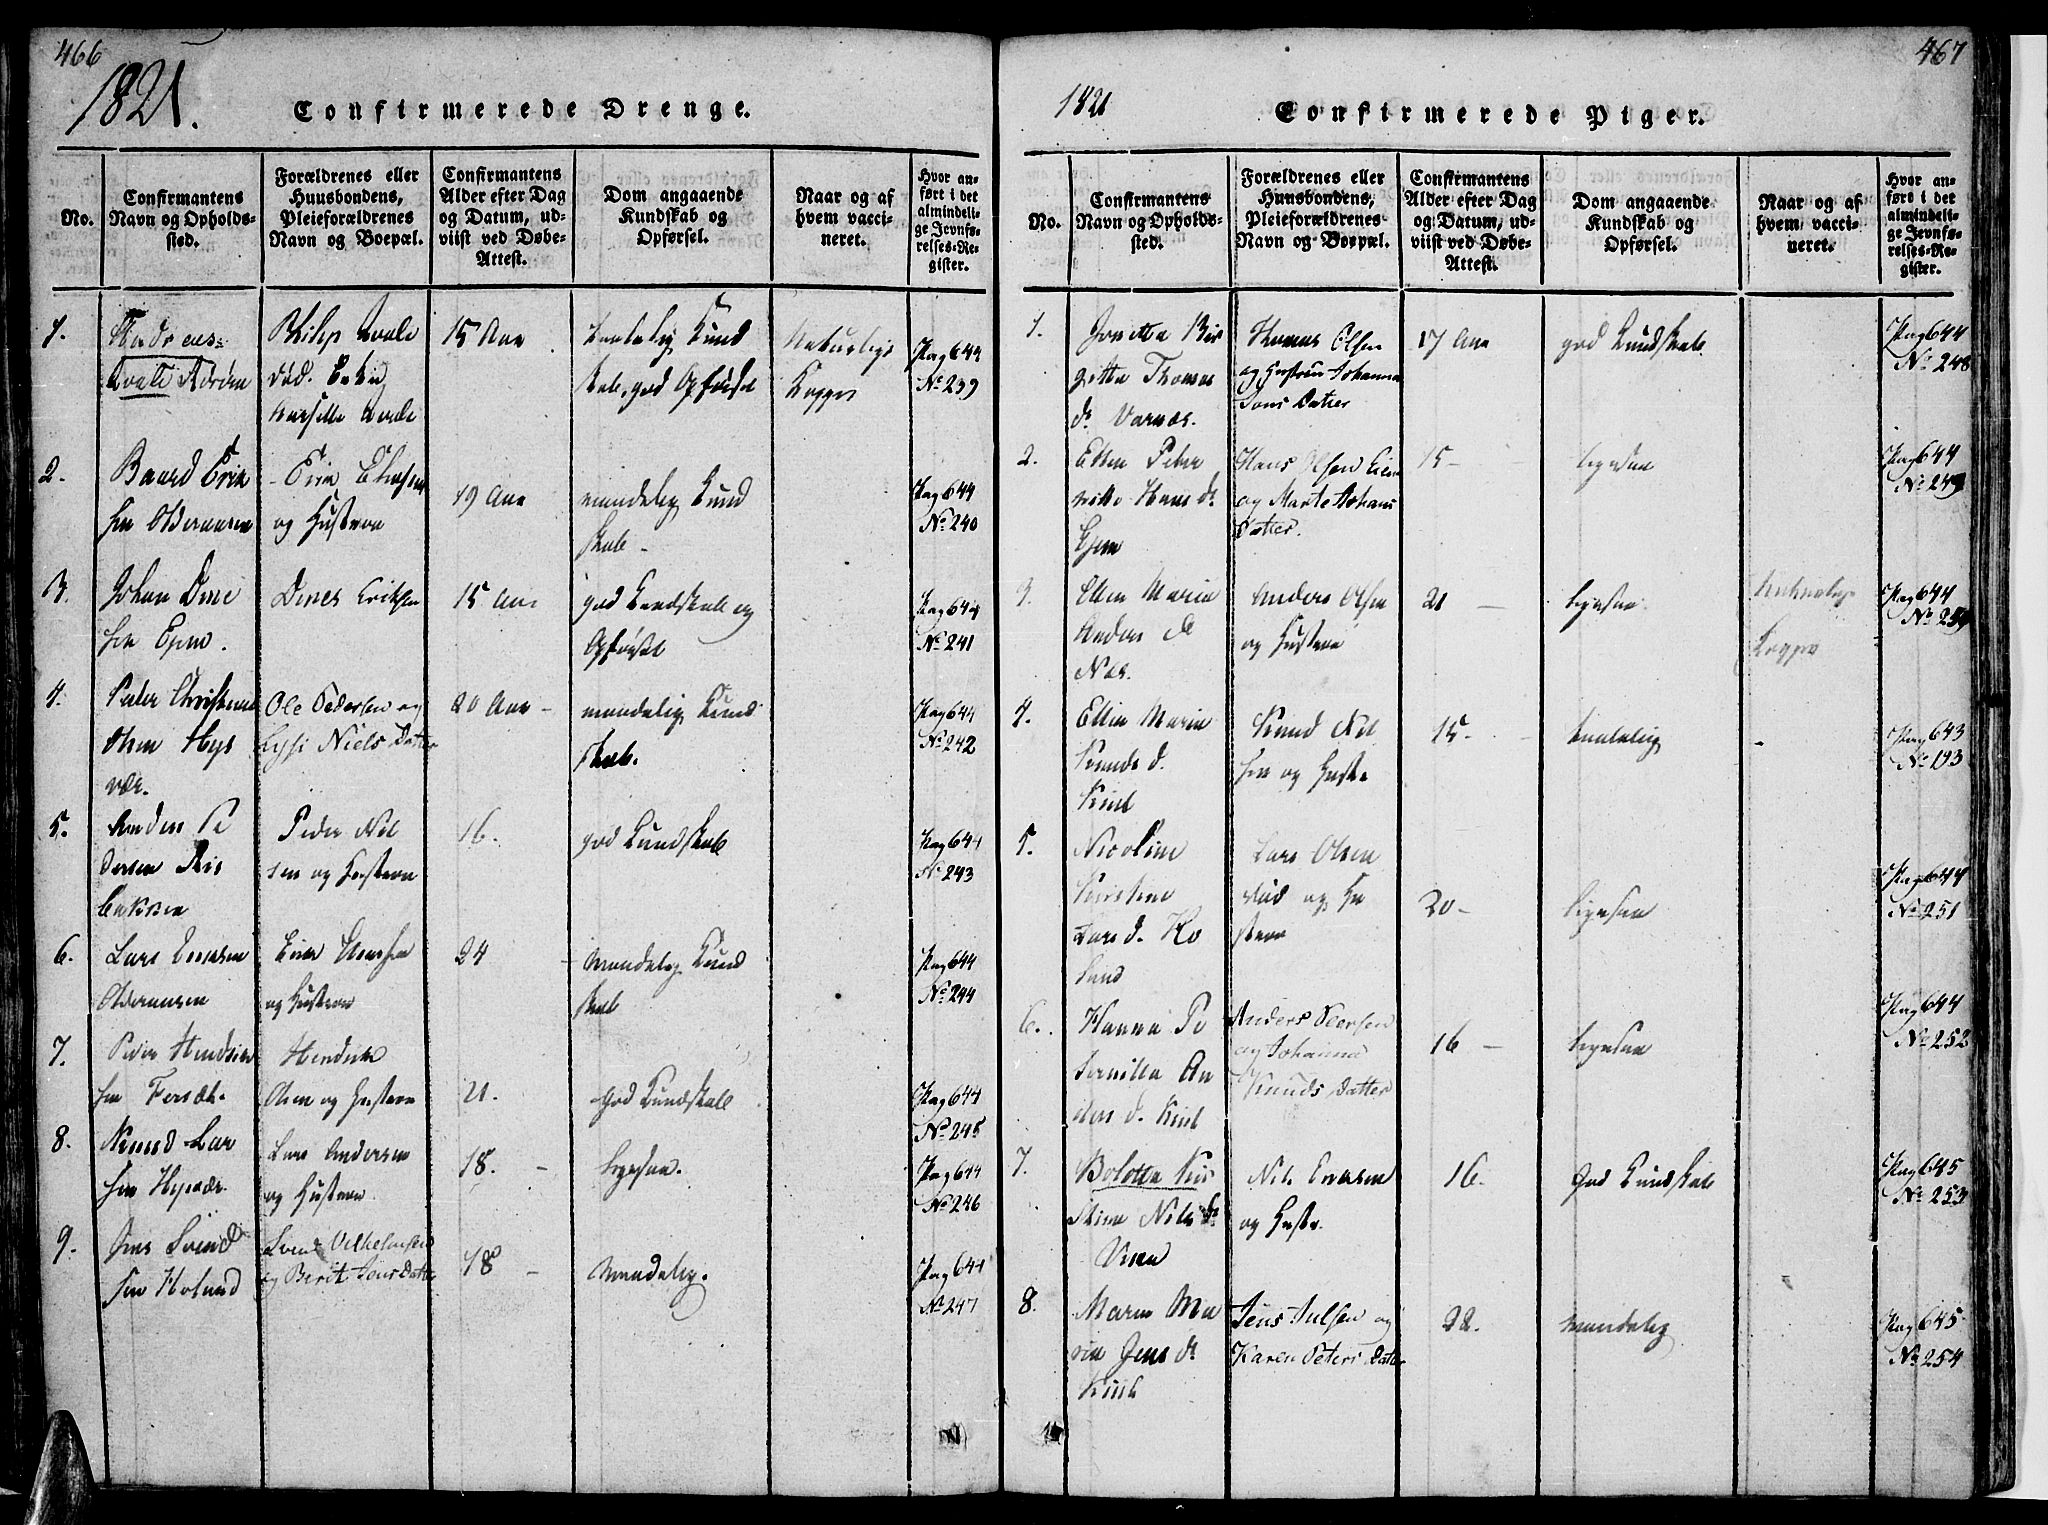 466
1821.
Confirmerede Drenge.
No.
Confirmantens Navn og Opholds-sted.
Forældrenes eller Huusbondens, Pleieforældrenes Navn og Boepæl.
Confirmantens Alder efter Dag og Datum, ud-viist ved Døbe-Attest.
Dom angaaende Kundskab og Opførsel.
Naar og af hvem vacci-neret.
Hvor an-ført i det almindeli-ge Jevnfø-relses-Re-gister.
1.
15 Aar
god Opførsel
Naturlige
Kopper
Pag 644
No 239
2.
Baard Erik
sen Olderaasen
og Hustrue
19 Aar
maadelig Kund
skab
Pag 644
No 240
3.
Johan Dine
sen Ejem.
Dines Eriksen
15 Aar
god Kundskab og
Opførsel
Pag 644
No 241
4.
Peder Christian
Olsen Hys
vær.
Ole Pedersen og
Niels Datter
20 Aar
maadelig Kund
skab.
Pag 644
No 242
5.
Anders Pe
dersen Ris
bakken
Peder Nil
sen og Hustrue
16.
god Kundskab
Pag 644
No 243
6.
Lars Ericksen
Olderaasen
og Hustrue
24
Maadelig Kund
skab
Pag 644
No 244
7.
Peder Hendrik
sen Forsæt.
Hendrik
Olsen og Hustrue
21.
God Kundskab
Pag 644
No 245
8.
Knud Lar
sen Hysvær.
Lars Andersen
og Hustrue
18.
Ligesaa.
Pag 644
No 246
9.
Jens Svend
sen Holand
Svend Vilhelmsen
og Berit Jens Datter
18
Maadelig.
Pag 644
No 247
467
1821
Confirmerede Piger.
No.
Confirmantens Navn og Opholds-sted.
Forældrenes eller Huusbondens, Pleieforældrenes Navn og Boepæl.
Confirmantens Alder efter Dag og Datum, ud-viist ved Døbe-Attest.
Dom angaaende Kundskab og Opførsel.
Naar og af hvem vacci-neret.
Hvor an-ført i det almindeli-ge Jevnfø-relses-Re-gister.
1.
Jonetta Bir
gitta Thomas
dr. Varnæs.
Thomas Olsen
og Hustrue Johanna
Jons Datter
17 Aar
god Kundskab
Pag 644
No 248
2.
Ellen Peter
nille Hans dr.
Ejem
Hans Olsen Eiem
og Marte Johans
Datter.
15
ligesaa
Pag 644
No 249
3.
Ellen Maria
Anders dr
Næs.
Anders Olsen
og Hustrue
21
ligesaa.
Naturlige
Kopper
Pag 644
4.
Ellen Maria
Knuds d.
Knud Nil
sen og Hustr.
15.
taalelig
Pag 643
No 193
5.
Nicoline
Kirstine
Lars d. Ho
land
Lars Olsen
død og Hu
strue
20
ligesaa
Pag 644
No 251
6.
Hanna Pe
ternilla An
ders d.
Anders Peersen
og Johanna
Knuds Datter
16
ligesaa
Pag 644
No 252
7.
Bolotta Kir
stine Nils dr
Nils Ericksen
og Hustr.
16.
God Kundskab
Pag 645
No 253
8.
Maren Ma
ria Jens dr.
Jens Julsen og
Karen Peters Datter
22.
maadelig
Pag 645
No 254